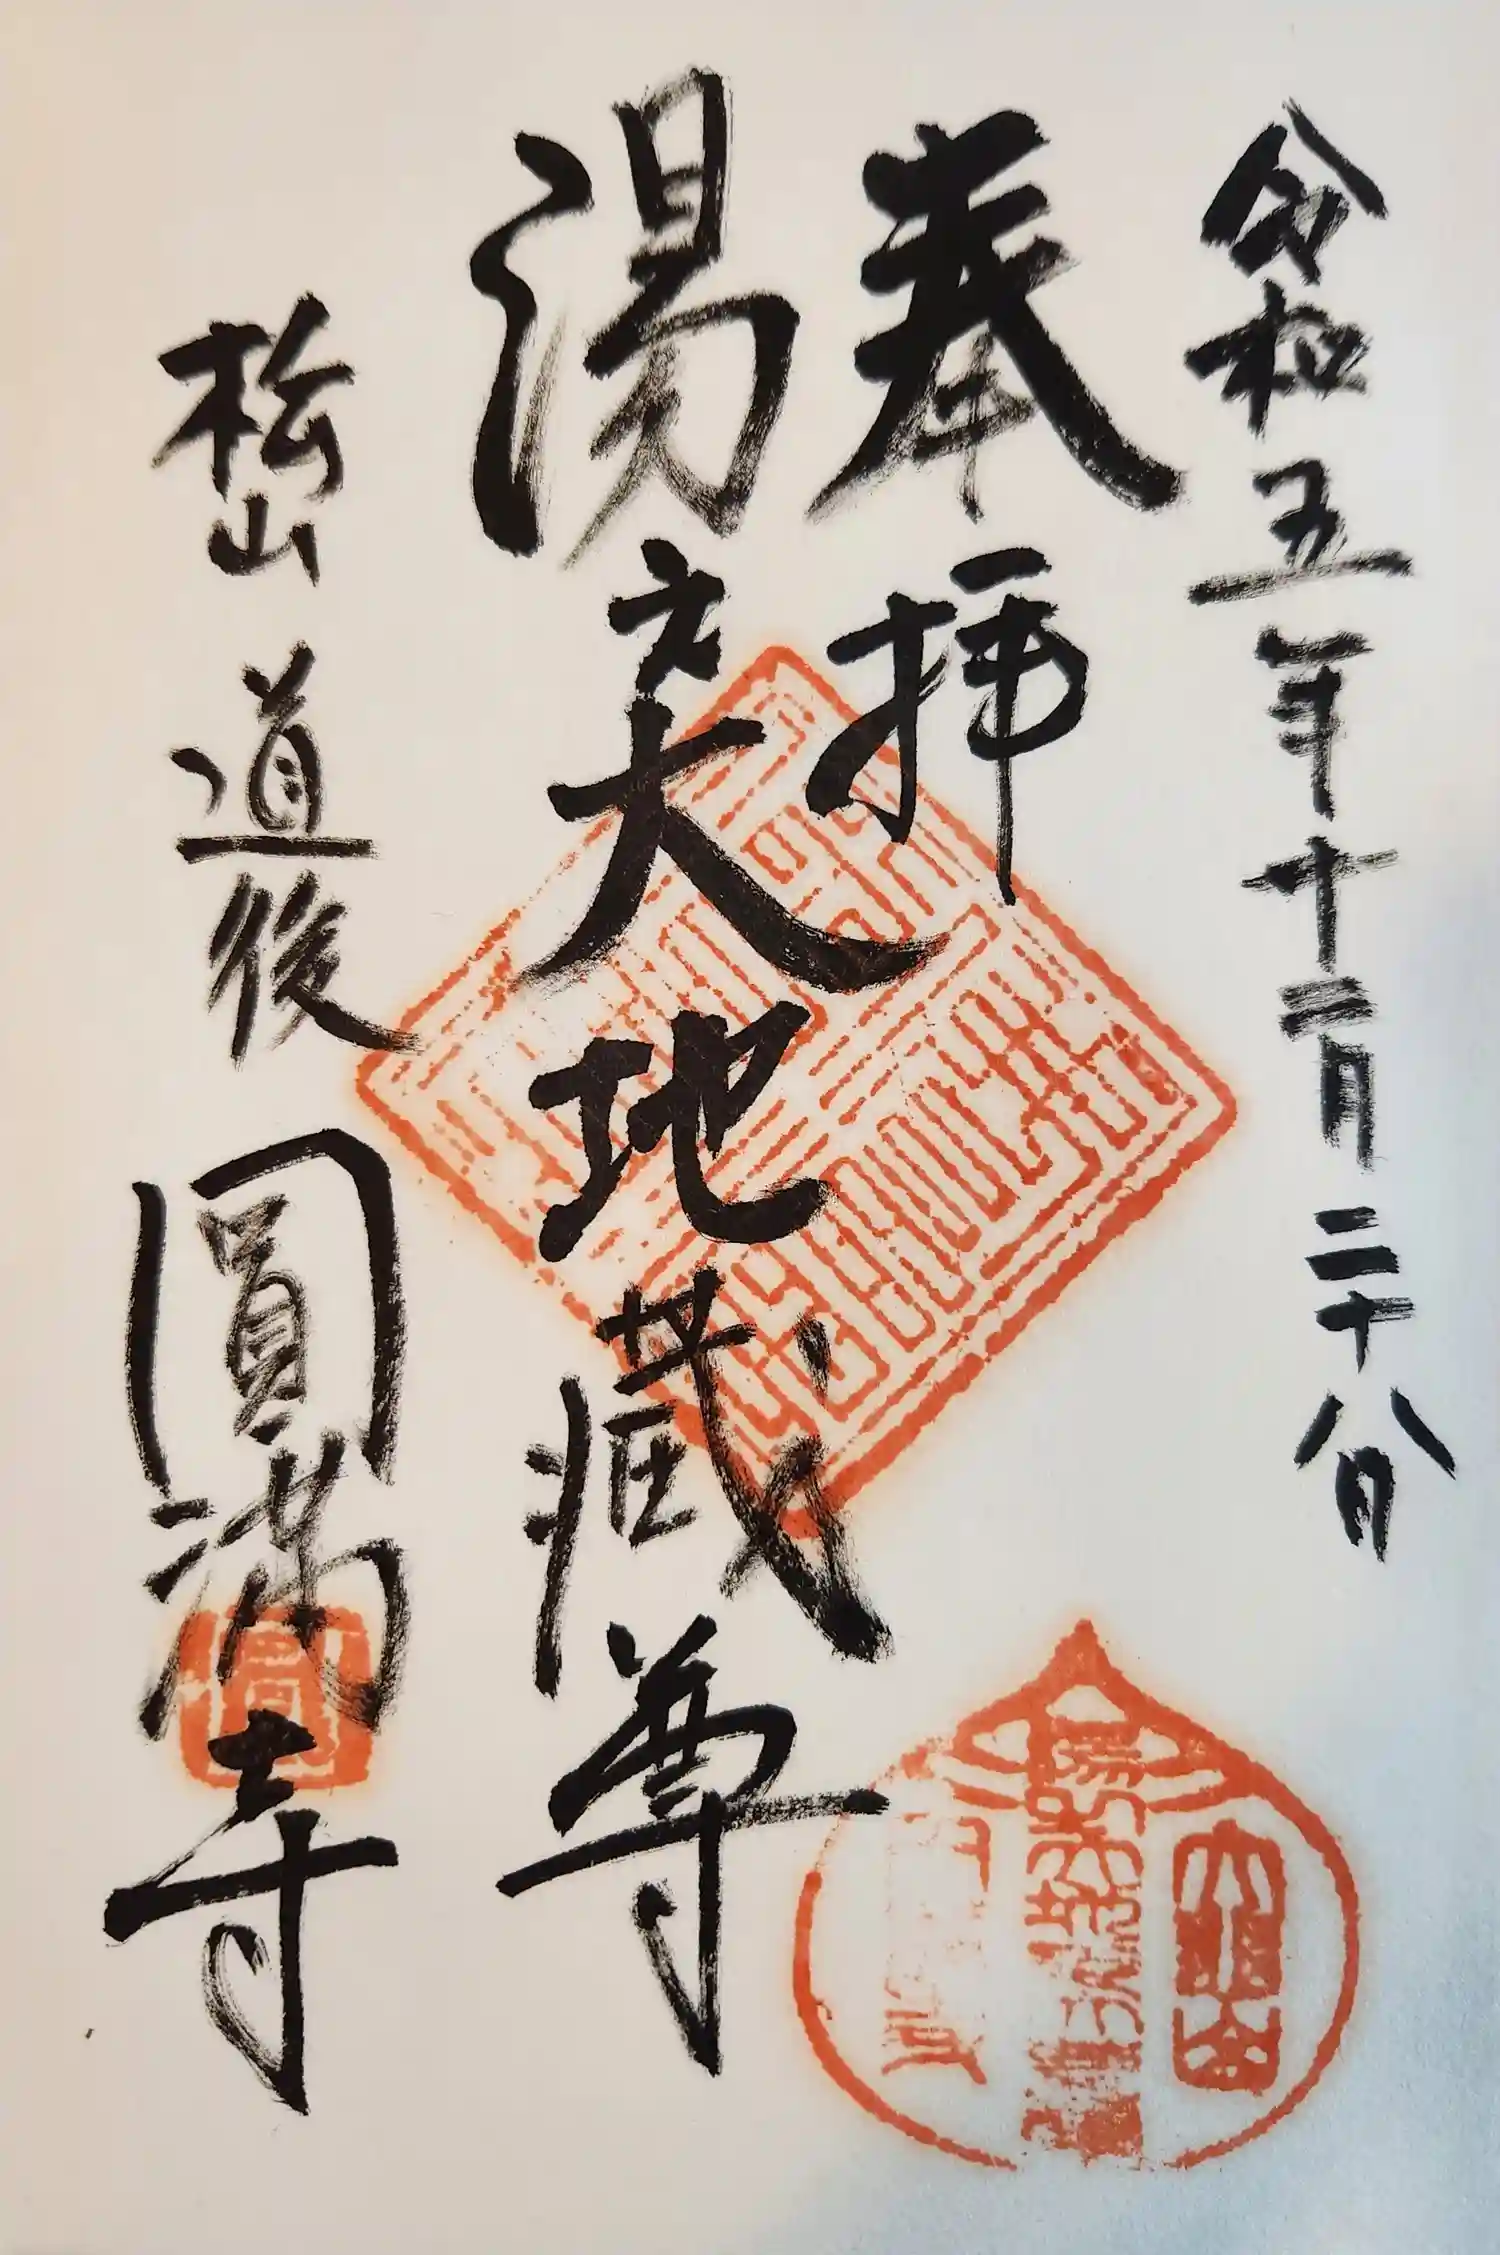 令和五年十二月二十八日
奉拝
湯之大地藏尊
松山 道後 圓満寺